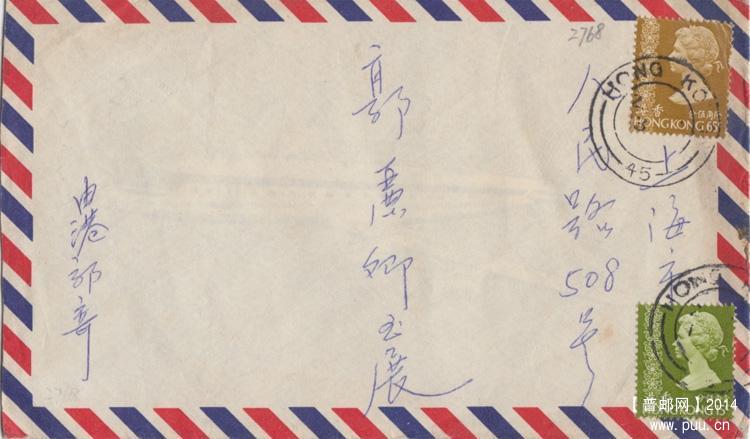 上海市
人民路508号
郭惠卿玉展
由港郭寄
2768
香港
HONG KONG 65¢
HONG KO
45
HONG
【普邮网】2014
www.puu.cn